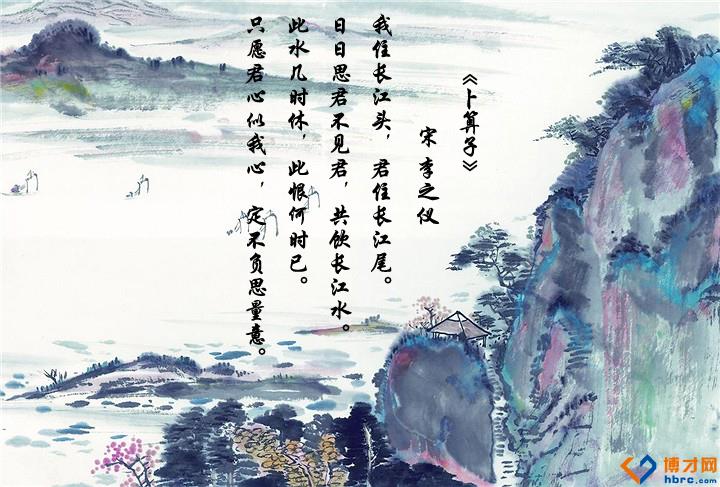 《卜算子》
宋 李之仪
我住长江头，君住长江尾。
日日思君不见君，共饮长江水。
此水几时休，此恨何时已。
只愿君心似我心，定不负思量意。
博才网
hbrc.com